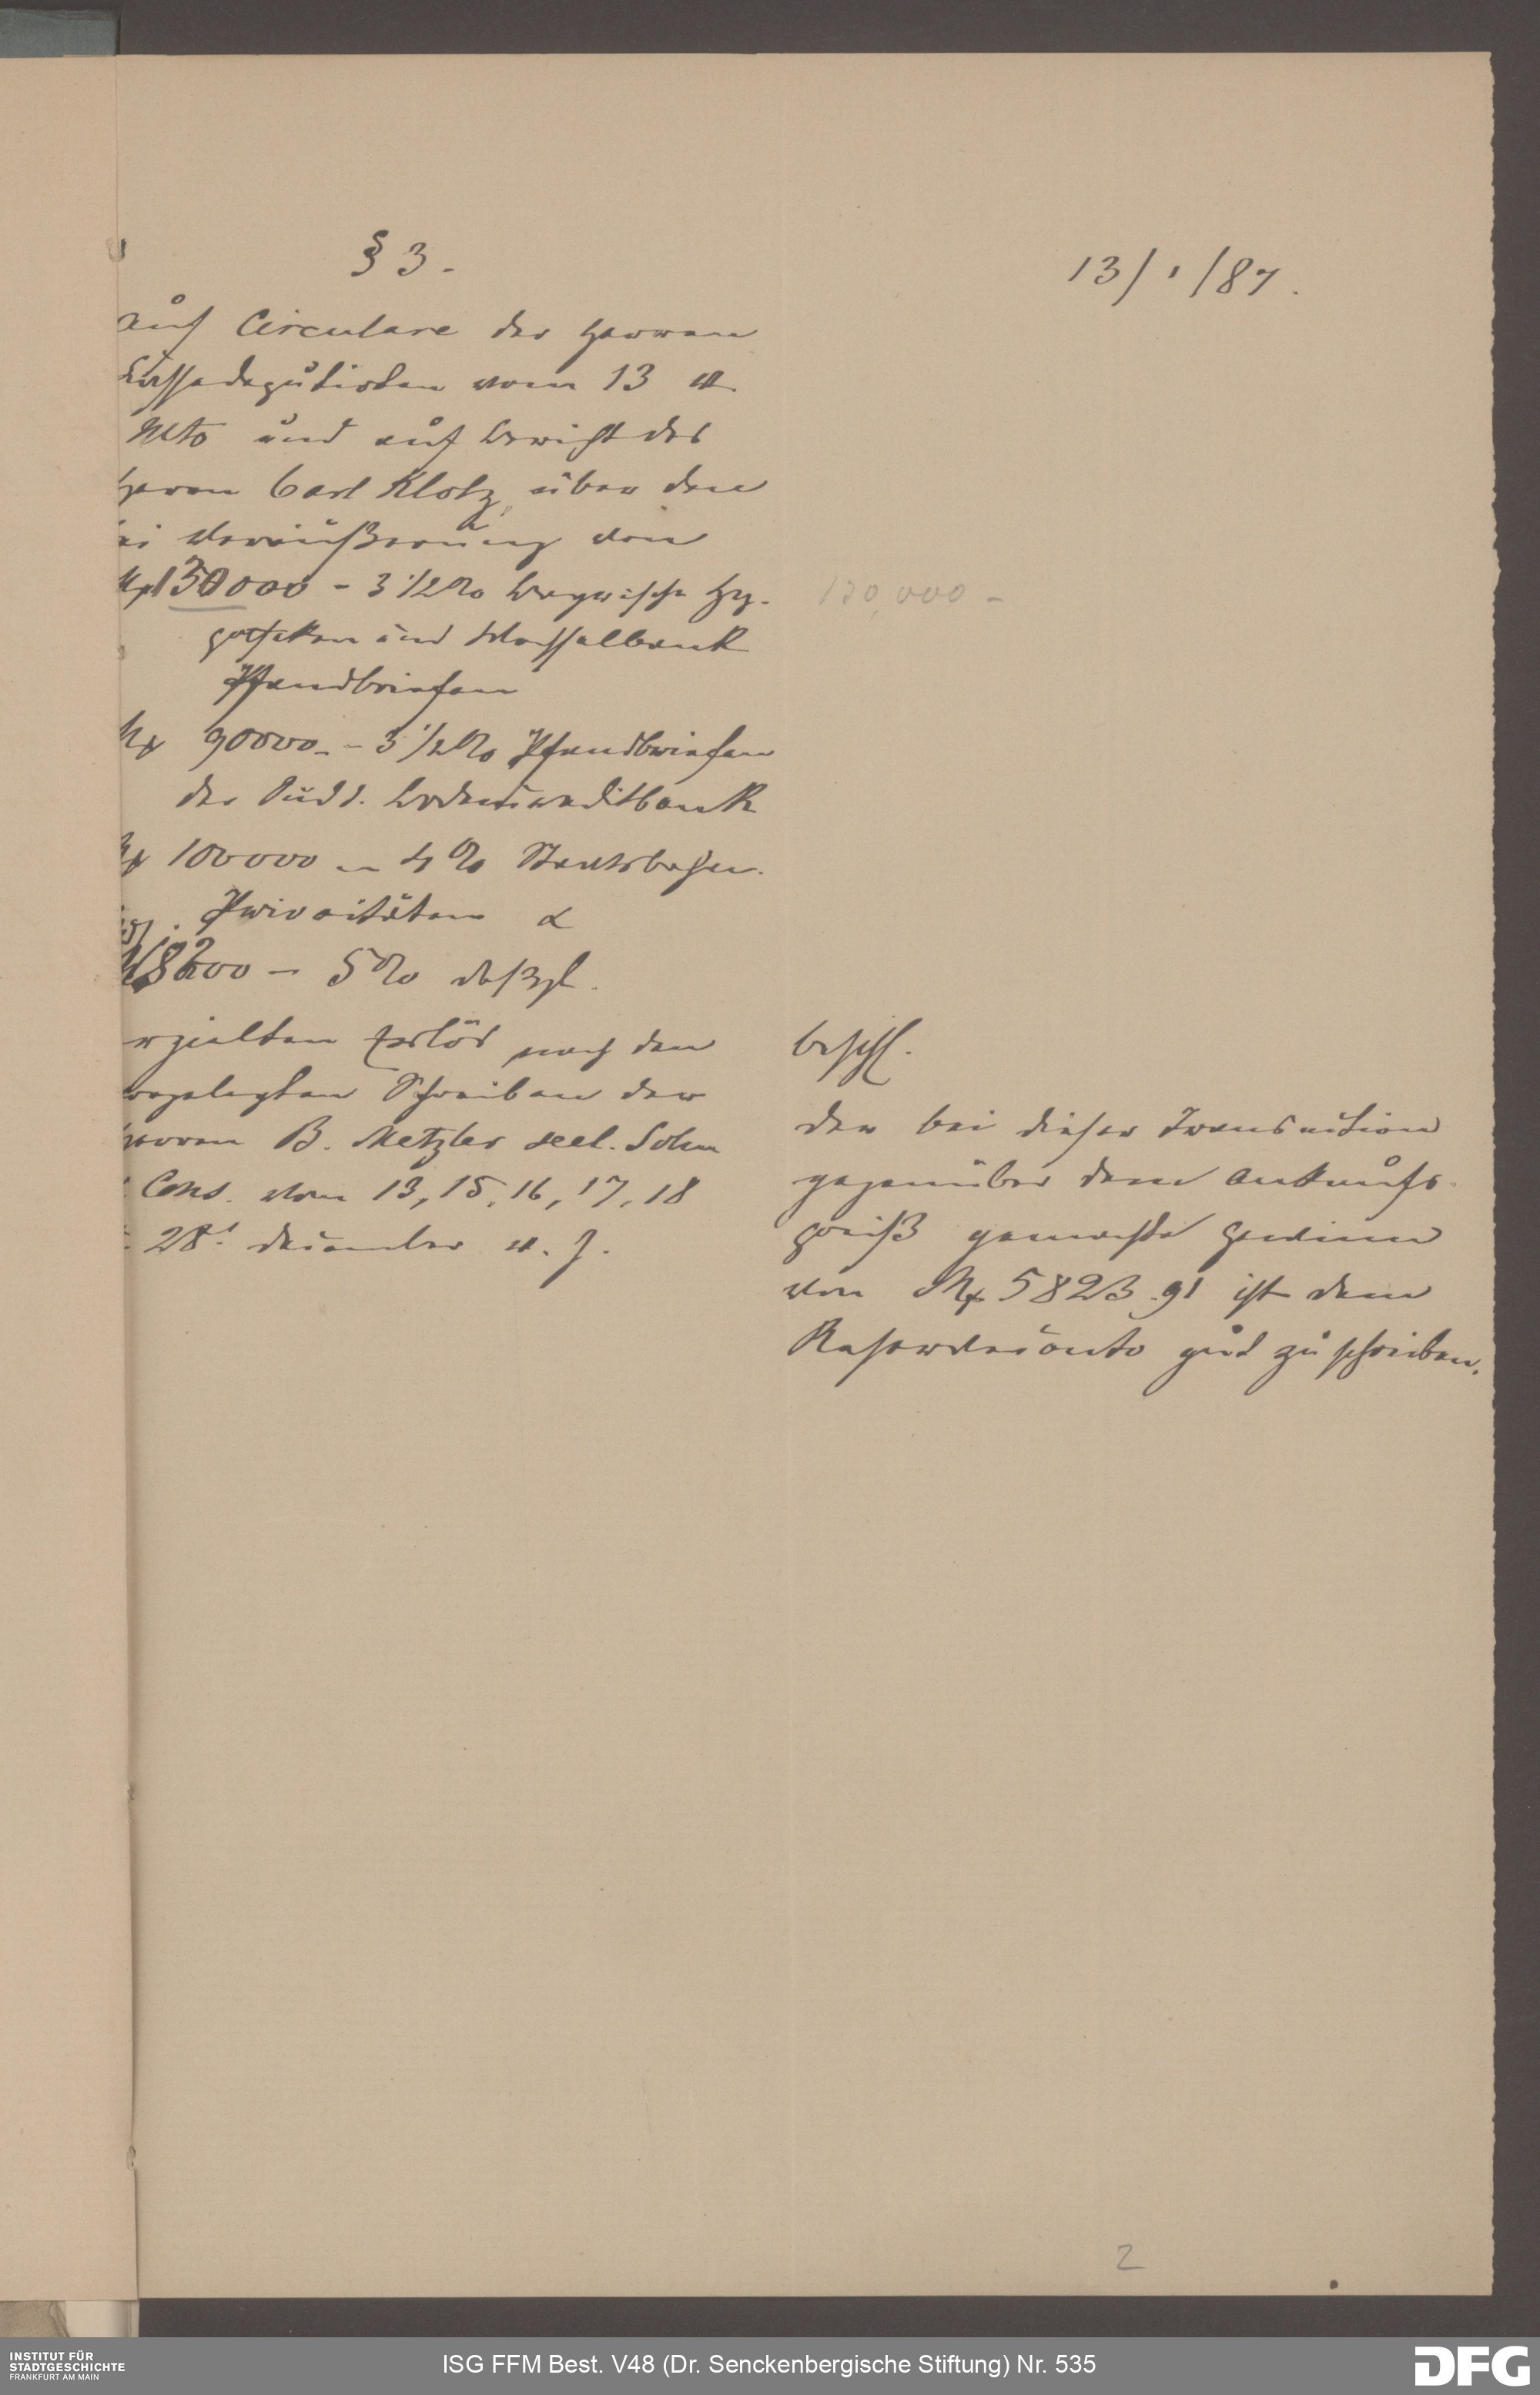 § 3.
13/1/87.
auf Circulare der Herren
Cassadeputirten vom 13 v.
Mts und auf Bericht des
Herrn Carl Klotz, über den
bei Veräußerung von
M 130000 - 3 1/2 % Bayrische Hy-
130,000 -
potheken und Wechselbank
Pfandbriefen
M 90000 - 3 1/2 % Pfandbriefen
der Südd. Bodencreditbank
M 100000 - 4 % Staatsbahn.
Prioritäten &
5 % desgl.
erzielten Erlös nach den
vorgelegten Schreiben der
Herren B. Metzler seel. Sohn
Cons. vom 13, 15, 16, 17, 18
28t December v. J.
beschl.
der bei dieser Transaction
gegenüber dem Ankaufs-
preiß gemachte Gewinn
von M 5823.91 ist dem
Reserveconto gut zu schreiben.
2
INSTITUT FÜR
STADTGESCHICHTE
FRANKFURT AM MAIN
ISG FFM Best. V48 (Dr. Senckenbergische Stiftung) Nr. 535
DFG